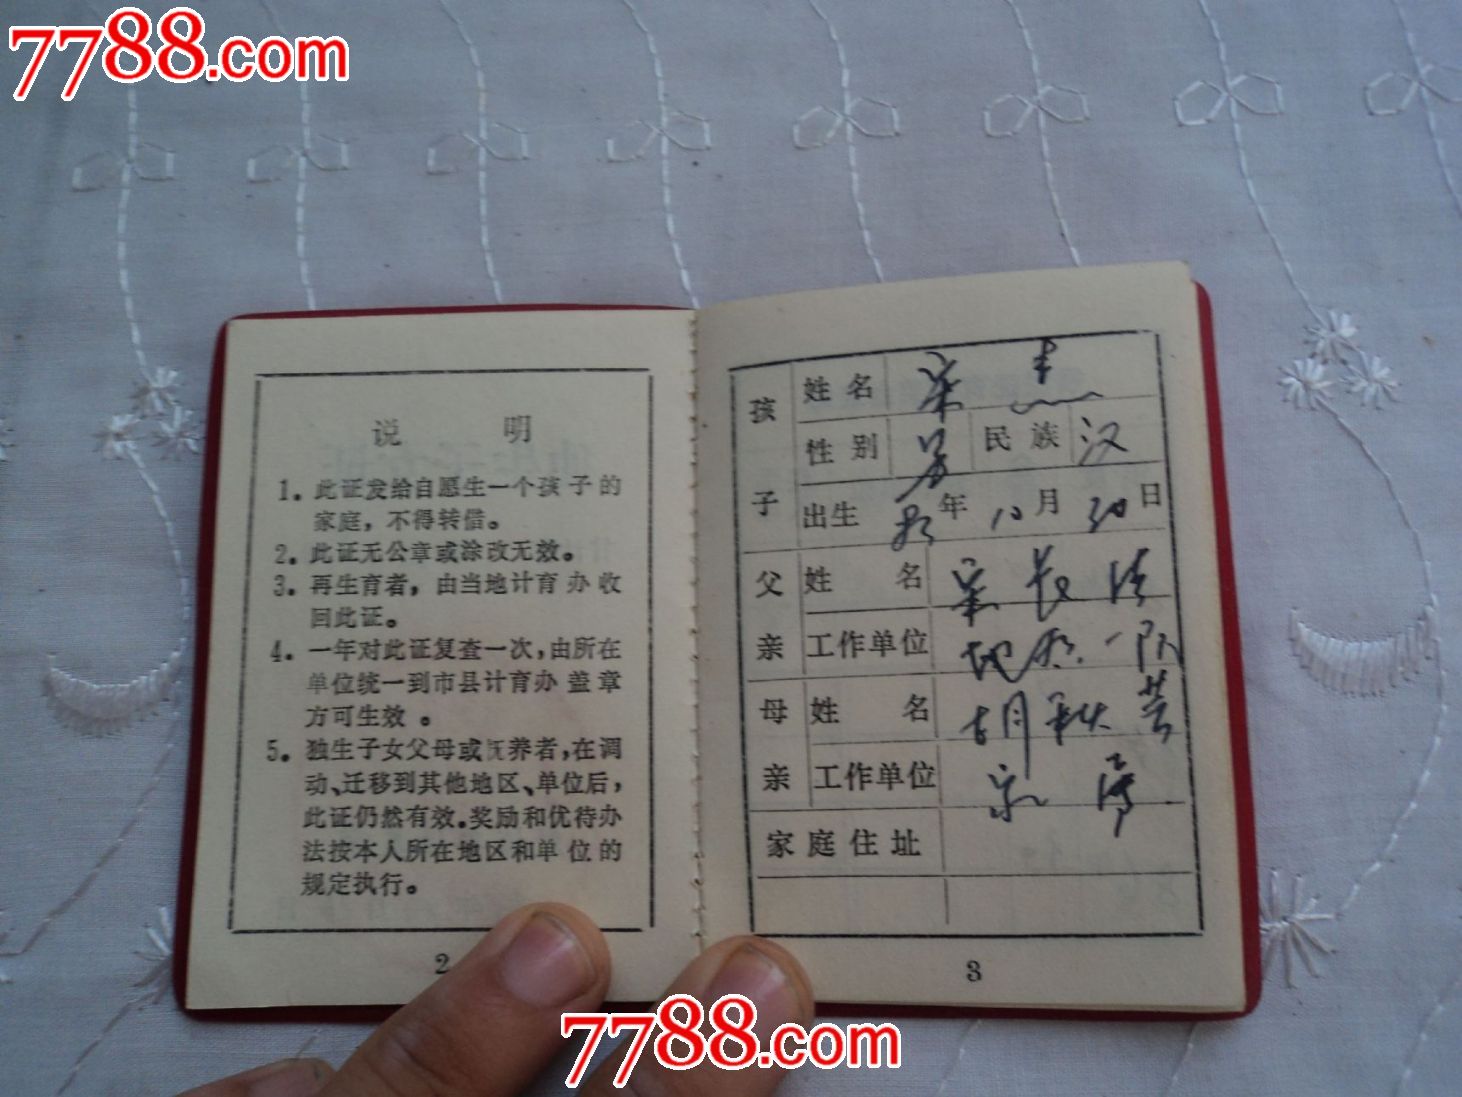 7788.com
说 明
1. 此证发给自愿生一个孩子的
家庭，不得转借。
2. 此证无公章或涂改无效。
3. 再生育者，由当地计育办收
回此证。
4. 一年对此证复查一次，由所在
单位统一到市县计育办盖章
方可生效。
5. 独生子女父母或抚养者，在调
动、迁移到其他地区、单位后，
此证仍然有效。奖励和优待办
法按本人所在地区和单位的
规定执行。
2
孩子
姓名
性别 男 民族 汉
出生 年 10月 30日
父亲
姓名
工作单位 一队
母亲
姓名 胡秋芸
工作单位
家庭住址
3
7788.com